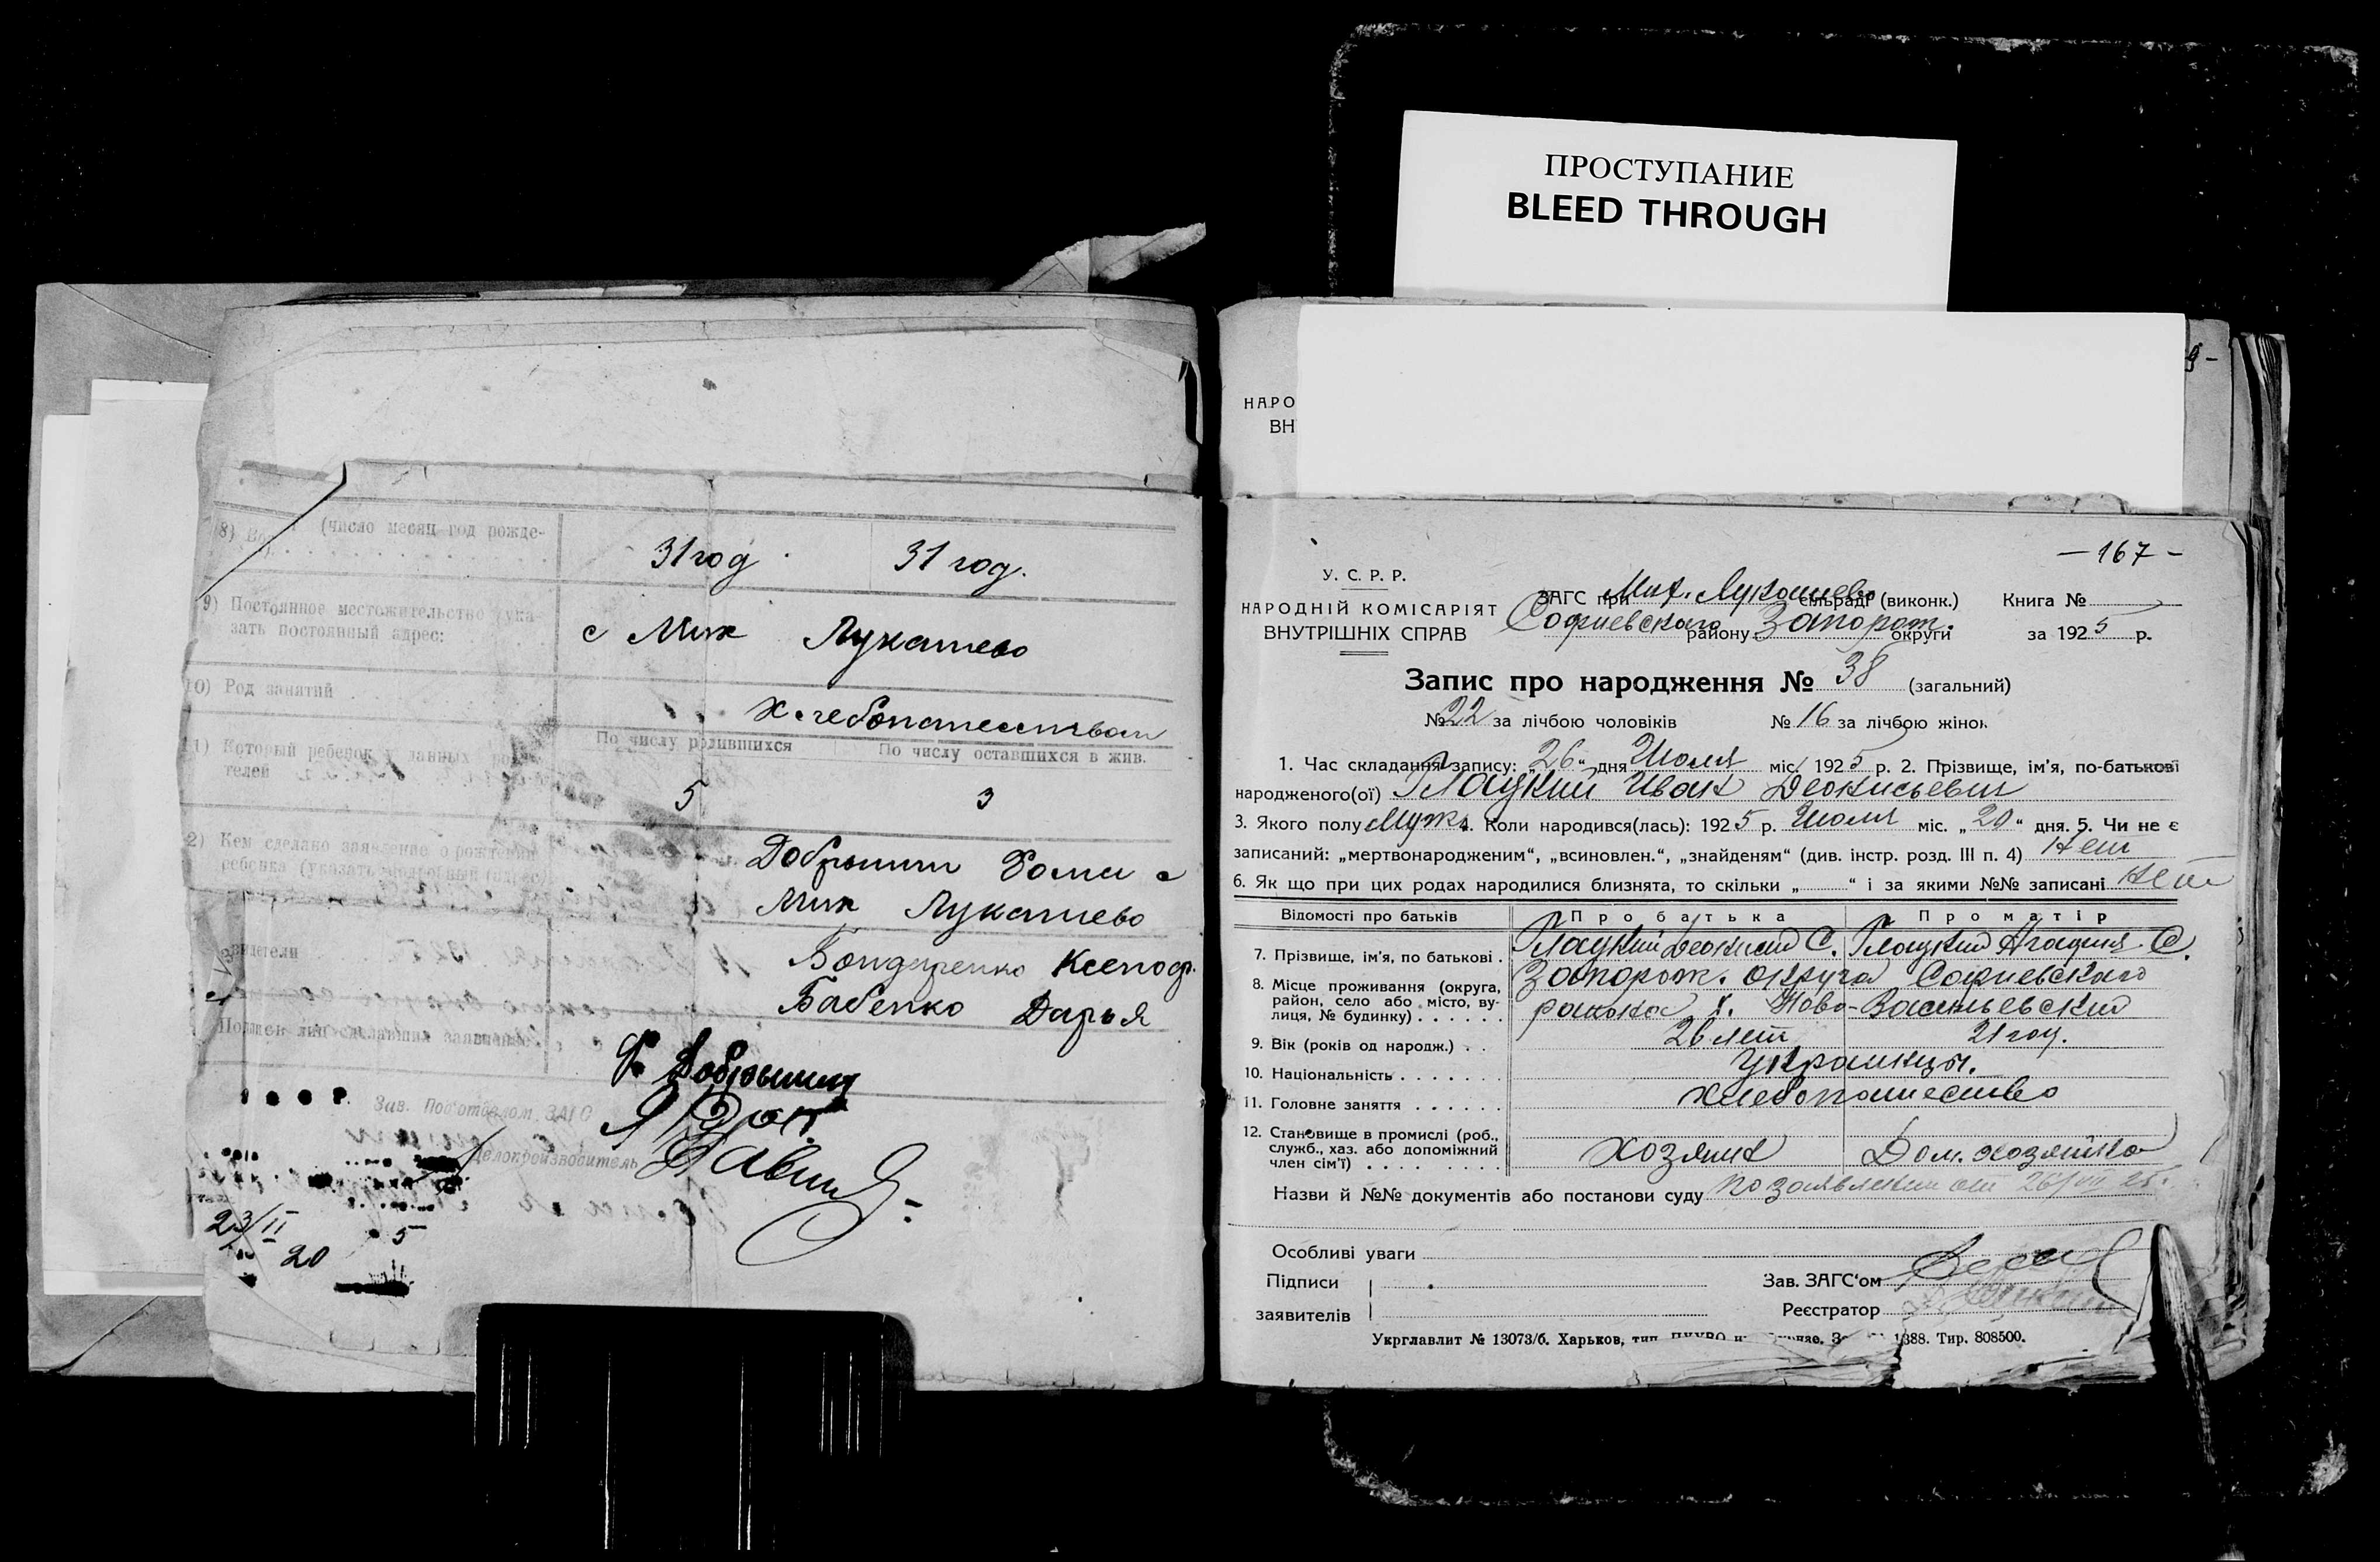 ПРОСТУПАНИЕ
BLEED THROUGH
8) (число месяц год рожде-
31 год 31 год.
9) Постоянное местожительство (ука-
зать постоянный адрес:
с Мих Лукашево
10) Род занятий
Хлебопашеством
11) Который ребенок у данных роди-
телей
По числу родившихся По числу оставшихся в жив.
5 3
12) Кем сделано заявление о рождении
ребенка (указать подробный адрес)
Добрынин Фома с
Мих Лукашево
Бондаренко Ксеноф.
Бабенко Дарья
Подписи лиц сделавших заявление
Ф. Добрынин
Зав. Подотделом ЗАГС
Делокроизводитель
23/II
20
5
НАРО
ВН
— 167 —
У. С. Р. Р.
НАРОДНІЙ КОМІСАРІЯТ
ВНУТРІШНІХ СПРАВ
ЗАГС при Мих. Лукашево сільраді (виконк.) Книга №
Софиевского району Запорож. округи за 1925 р.
Запис про народження № 38 (загальний)
№ 22 за лічбою чоловіків № 16 за лічбою жінок
1. Час складання запису: „26“ дня Июля міс. 1925 р. 2. Прізвище, ім’я, по-батькові
народженого(ої) Иван Деонисьевич
3. Якого полу Муж. 4. Коли народився(лась): 1925 р. Июля міс. „20“ дня. 5. Чи не є
записаний: „мертвонародженим“, „всиновлен.“, „знайденям“ (див. інстр. розд. III п. 4) Нет
6. Як що при цих родах народилися близнята, то скільки „ “ і за якими №№ записані Нет
Відомості про батьків Про батька Про матір
7. Прізвище, ім’я, по батькові . Деонисий С. Агафия С.
8. Місце проживання (округа,
район, село або місто, ву-
лиця, № будинку) . . . . . .
Запорож. округа Софиевского
района х. Ново-Васильевский
9. Вік (років од народж.) . . 26 лет 21 год.
10. Національність . . . . . . . Украинцы.
11. Головне заняття . . . . . . Хлебопашество
12. Становище в промислі (роб.,
служб., хаз. або допоміжний
член сім’ї) . . . . . . . . .
хозяин Дом. хозяйка
Назви й №№ документів або постанови суду по заявлению от 26/VII 25 г.
Особливі уваги
Підписи
заявителів
Зав. ЗАГС‘ом
Реєстратор
Укрглавлит № 13073/б. Харьков, тип. 1388. Тир. 808500.